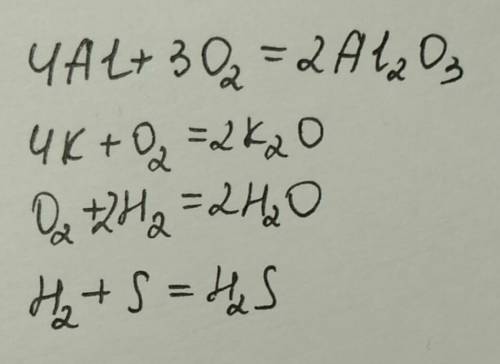 4Al + 3O₂ = 2Al₂O₃
4K + O₂ = 2K₂O
O₂ + 2H₂ = 2H₂O
H₂ + S = H₂S